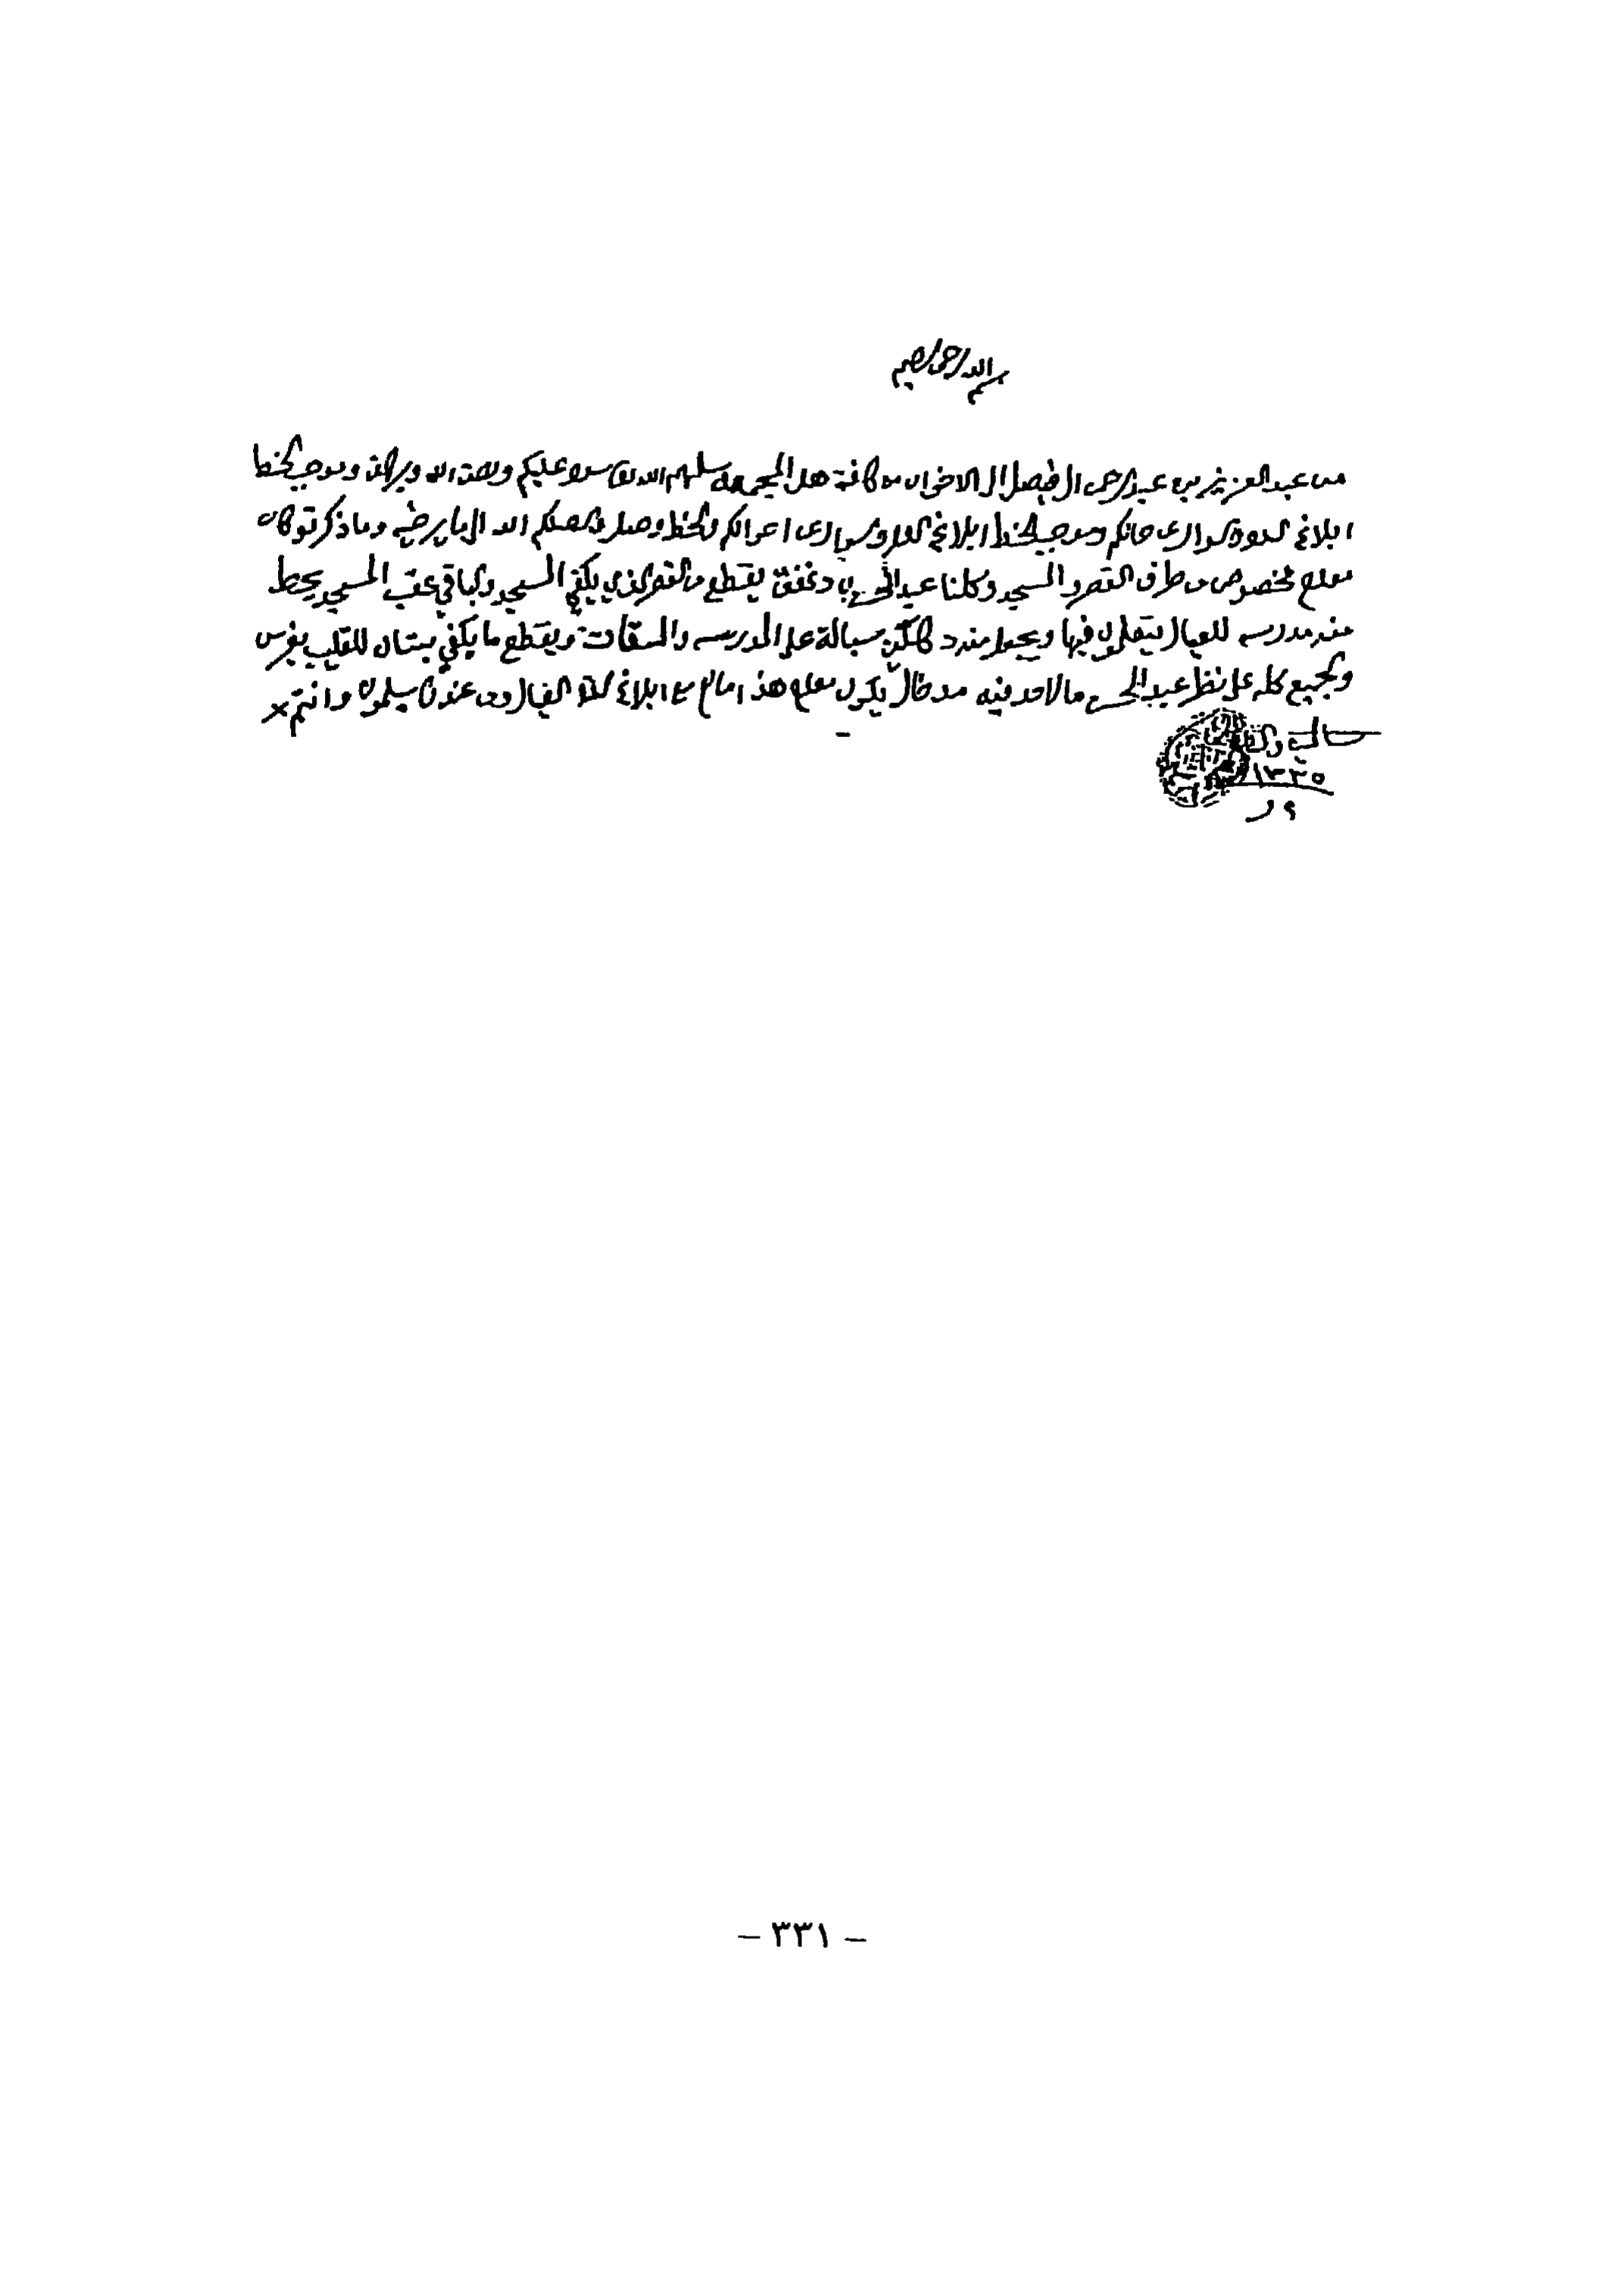 بسم الله الرحمن الرحيم
من عبد العزيز بن عبد الرحمن ال فيصل الى الاخوان كافة هل المجمعه سلمهم الله تعا سلام عليكم ورحمة الله وبركاته وموجب الخط
ابلاغ السلام والسوال عن حالكم وموجب الخط ابلاغ السلام وسوال عن احوالكم والخط وصل وصلكم الله الى ما يرضيه وما ذكرتو كان
معلوم مخصوص من طرف القصر والمسجد وكلنا عبد المحسن يقطع من القصر الذي يكفي المسجد والباقي عقب المسجد يحط
منه مدرسه للعيال يتعلمون فيها ويجعل منه دكاكين سبالة على المدرسه والمسقات ويقطع ما يكفي بستان للقليب يغرس
والجميع كله على نظر عبد المحسن ما لاحد فيه مدخال يكون معلوم هذا ما لزم مع ابلاغ السلام العيال ومن عندنا يسلمون وانتم
١٣٣٥
٩ ر
- ٣٣١ -